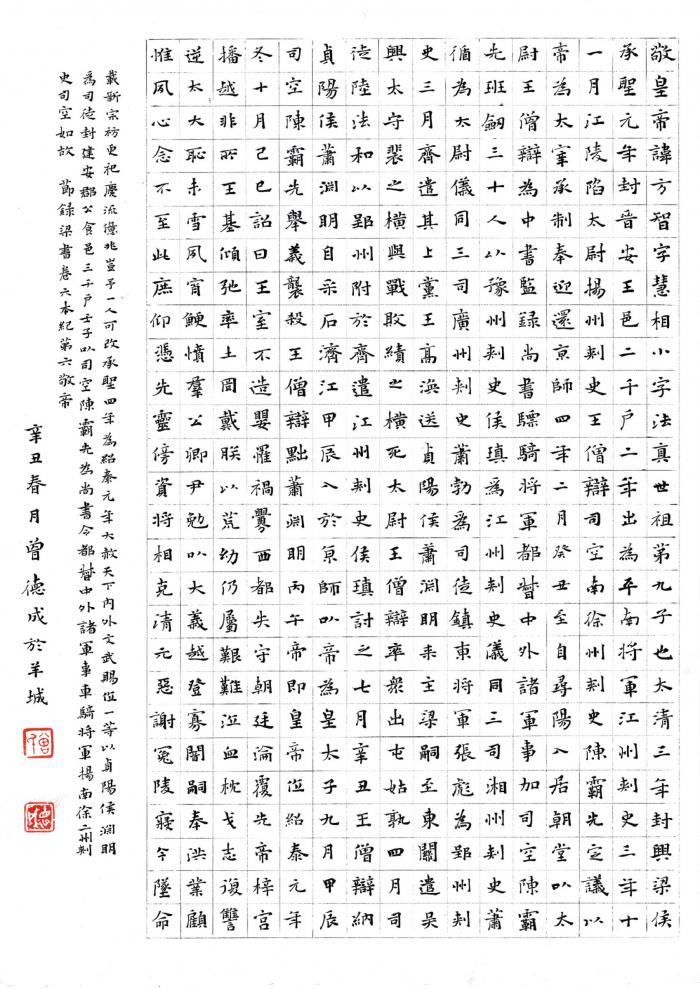 敬皇帝諱方智字慧相小字法真世祖第九子也太清三年封興梁侯
承聖元年封晉安王邑二千戶二年出為平南將軍江州刺史三年十
一月江陵陷太尉揚州刺史王僧辯司空南徐州刺史陳霸先定議以
帝為太宰承制奉迎還京師四年二月癸丑至自尋陽入居朝堂以太
尉王僧辯為中書監錄尚書驃騎將軍都督中外諸軍事加司空陳霸
先班劔三十人以豫州刺史侯瑱為江州刺史儀同三司湘州刺史蕭
循為太尉儀同三司廣州刺史蕭勃為司徒鎮東將軍張彪為郢州刺
史三月齊遣其上黨王高渙送貞陽侯蕭淵明来主梁嗣至東關遣吳
興太守裴之橫與戰敗績之橫死太尉王僧辯率衆出屯姑孰四月司
徒陸法和以郢州附於齊遣江州刺史侯瑱討之七月辛丑王僧辯納
貞陽侯蕭淵明自采石濟江甲辰入於京師以帝為皇太子九月甲辰
司空陳霸先舉義襲殺王僧辯黜蕭淵明丙午帝即皇帝位紹泰元年
冬十月己巳詔曰王室不造嬰罹禍釁西都失守朝廷淪覆先帝梓宮
播越非所王基傾弛率土罔戴朕以荒幼仍屬艱難泣血枕戈志復讐
逆太大恥未雪夙宵鯁憤羣公卿尹勉以大義越登寡闇嗣奉洪業顧
惟夙心念不至此庶仰憑先靈傍資將相克清元惡謝冤陵寢今墜命
載新宗祊更祀慶流億兆豈予一人可改承聖四年為紹泰元年大赦天下內外文武賜位一等以貞陽侯淵明
為司徒封建安郡公食邑三千戶壬子以司空陳霸先為尚書令都督中外諸軍事車騎將軍揚南徐二州刺
史司空如故 節錄梁書卷六本紀第六敬帝
辛丑春月曾德成於羊城